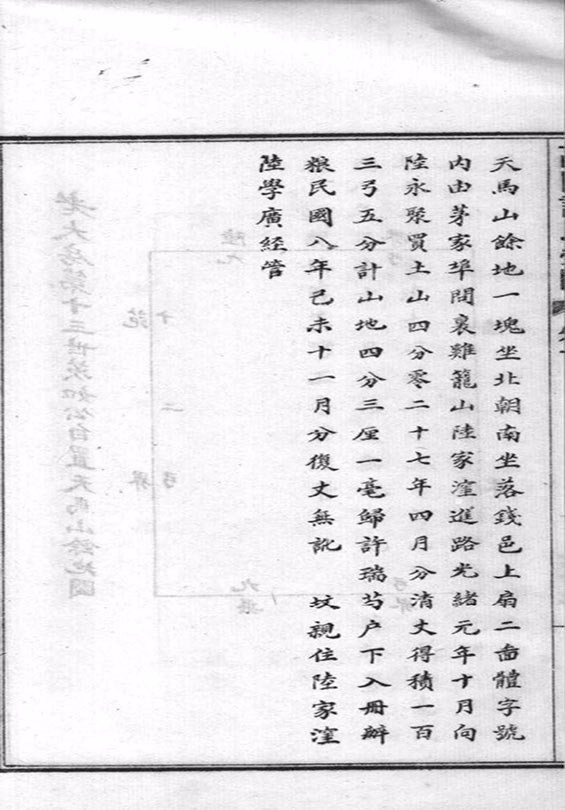 天馬山餘地一塊坐北朝南坐落錢邑上扇二啚體字號
內由茅家埠問裏雞籠山陸家漥進路光緒元年十月向
陸永聚買土山四分零二十七年四月分清丈得積一百
三弓五分計山地四分三厘一毫歸許瑞芍户下入册辦
粮民國八年己未十一月分復丈無訛 坟親住陸家漥
陸學廣經管